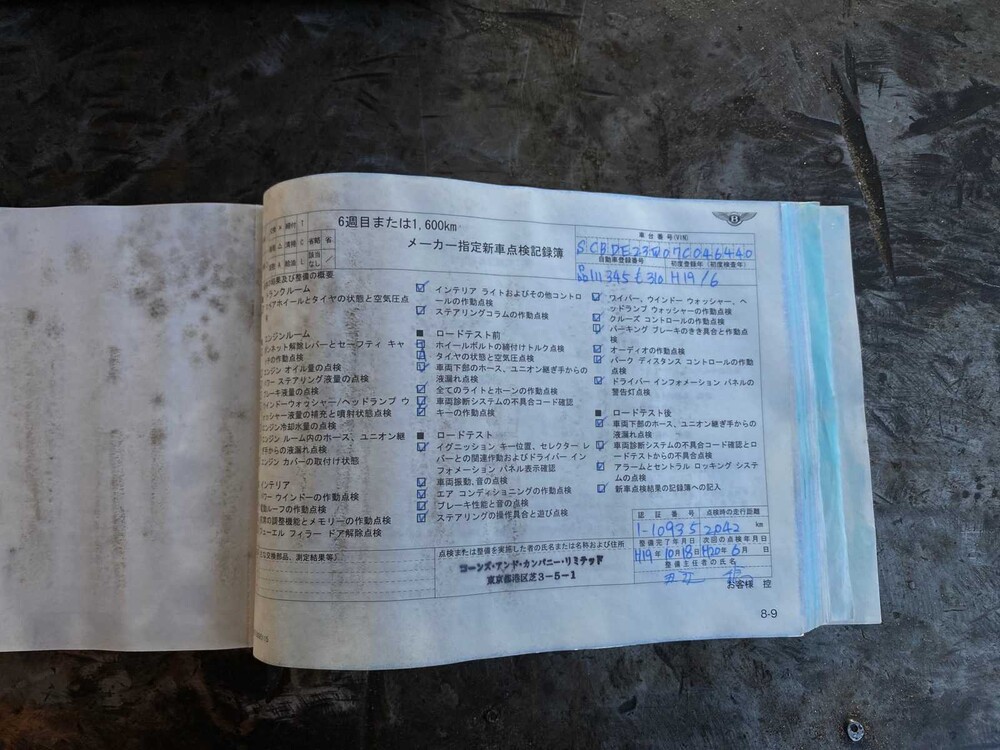 6週目または1,600km
メーカー指定新車点検記録簿
車台番号(VIN)
SCBDE23W07C046440
自動車登録番号 初度登録年(初度検査年)
345 310 H19/6
結果及び整備の概要
トランクルーム
スペアホイールとタイヤの状態と空気圧点
エンジンルーム
ボンネット解錠レバーとセーフティ キャ
チの作動点検
エンジン オイル量の点検
パワー ステアリング液量の点検
ブレーキ液量の点検
ウインドーウォッシャー/ヘッドランプ ウ
ォッシャー液量の補充と噴射状態点検
エンジン冷却水量の点検
エンジン ルーム内のホース、ユニオン継
ぎ手からの液漏れ点検
エンジン カバーの取付け状態
インテリア
パワー ウインドーの作動点検
ルーフの作動点検
の調整機能とメモリーの作動点検
フューエル フィラー ドア解除点検
な交換部品、測定結果等)
インテリア ライトおよびその他コントロ
ールの作動点検
ステアリングコラムの作動点検
■ ロードテスト前
ホイールボルトの締付けトルク点検
タイヤの状態と空気圧点検
車両下部のホース、ユニオン継ぎ手からの
液漏れ点検
全てのライトとホーンの作動点検
車両診断システムの不具合コード確認
キーの作動点検
■ ロードテスト
イグニッション キー位置、セレクター レ
バーとの関連作動およびドライバー イン
フォメーション パネル表示確認
車両振動、音の点検
エア コンディショニングの作動点検
ブレーキ性能と音の点検
ステアリングの操作具合と遊び点検
ワイパー、ウインドー ウォッシャー、ヘ
ッドランプ ウォッシャーの作動点検
クルーズ コントロールの作動点検
パーキング ブレーキのきき具合と作動点
検
オーディオの作動点検
パーク ディスタンス コントロールの作動
点検
ドライバー インフォメーション パネルの
警告灯点検
■ ロードテスト後
車両下部のホース、ユニオン継ぎ手からの
液漏れ点検
車両診断システムの不具合コード確認とロ
ードテストからの不具合点検
アラームとセントラル ロッキング システ
ムの点検
新車点検結果の記録簿への記入
認証番号 点検時の走行距離
1-10935 2042 km
整備完了年月日 次回の点検年月日
H19年10月18日 H20年6月 日
整備主任者の氏名
点検または整備を実施した者の氏名または名称および住所
コーンズ・アンド・カンパニー・リミテッド
東京都港区芝3-5-1
お客様 控
8-9